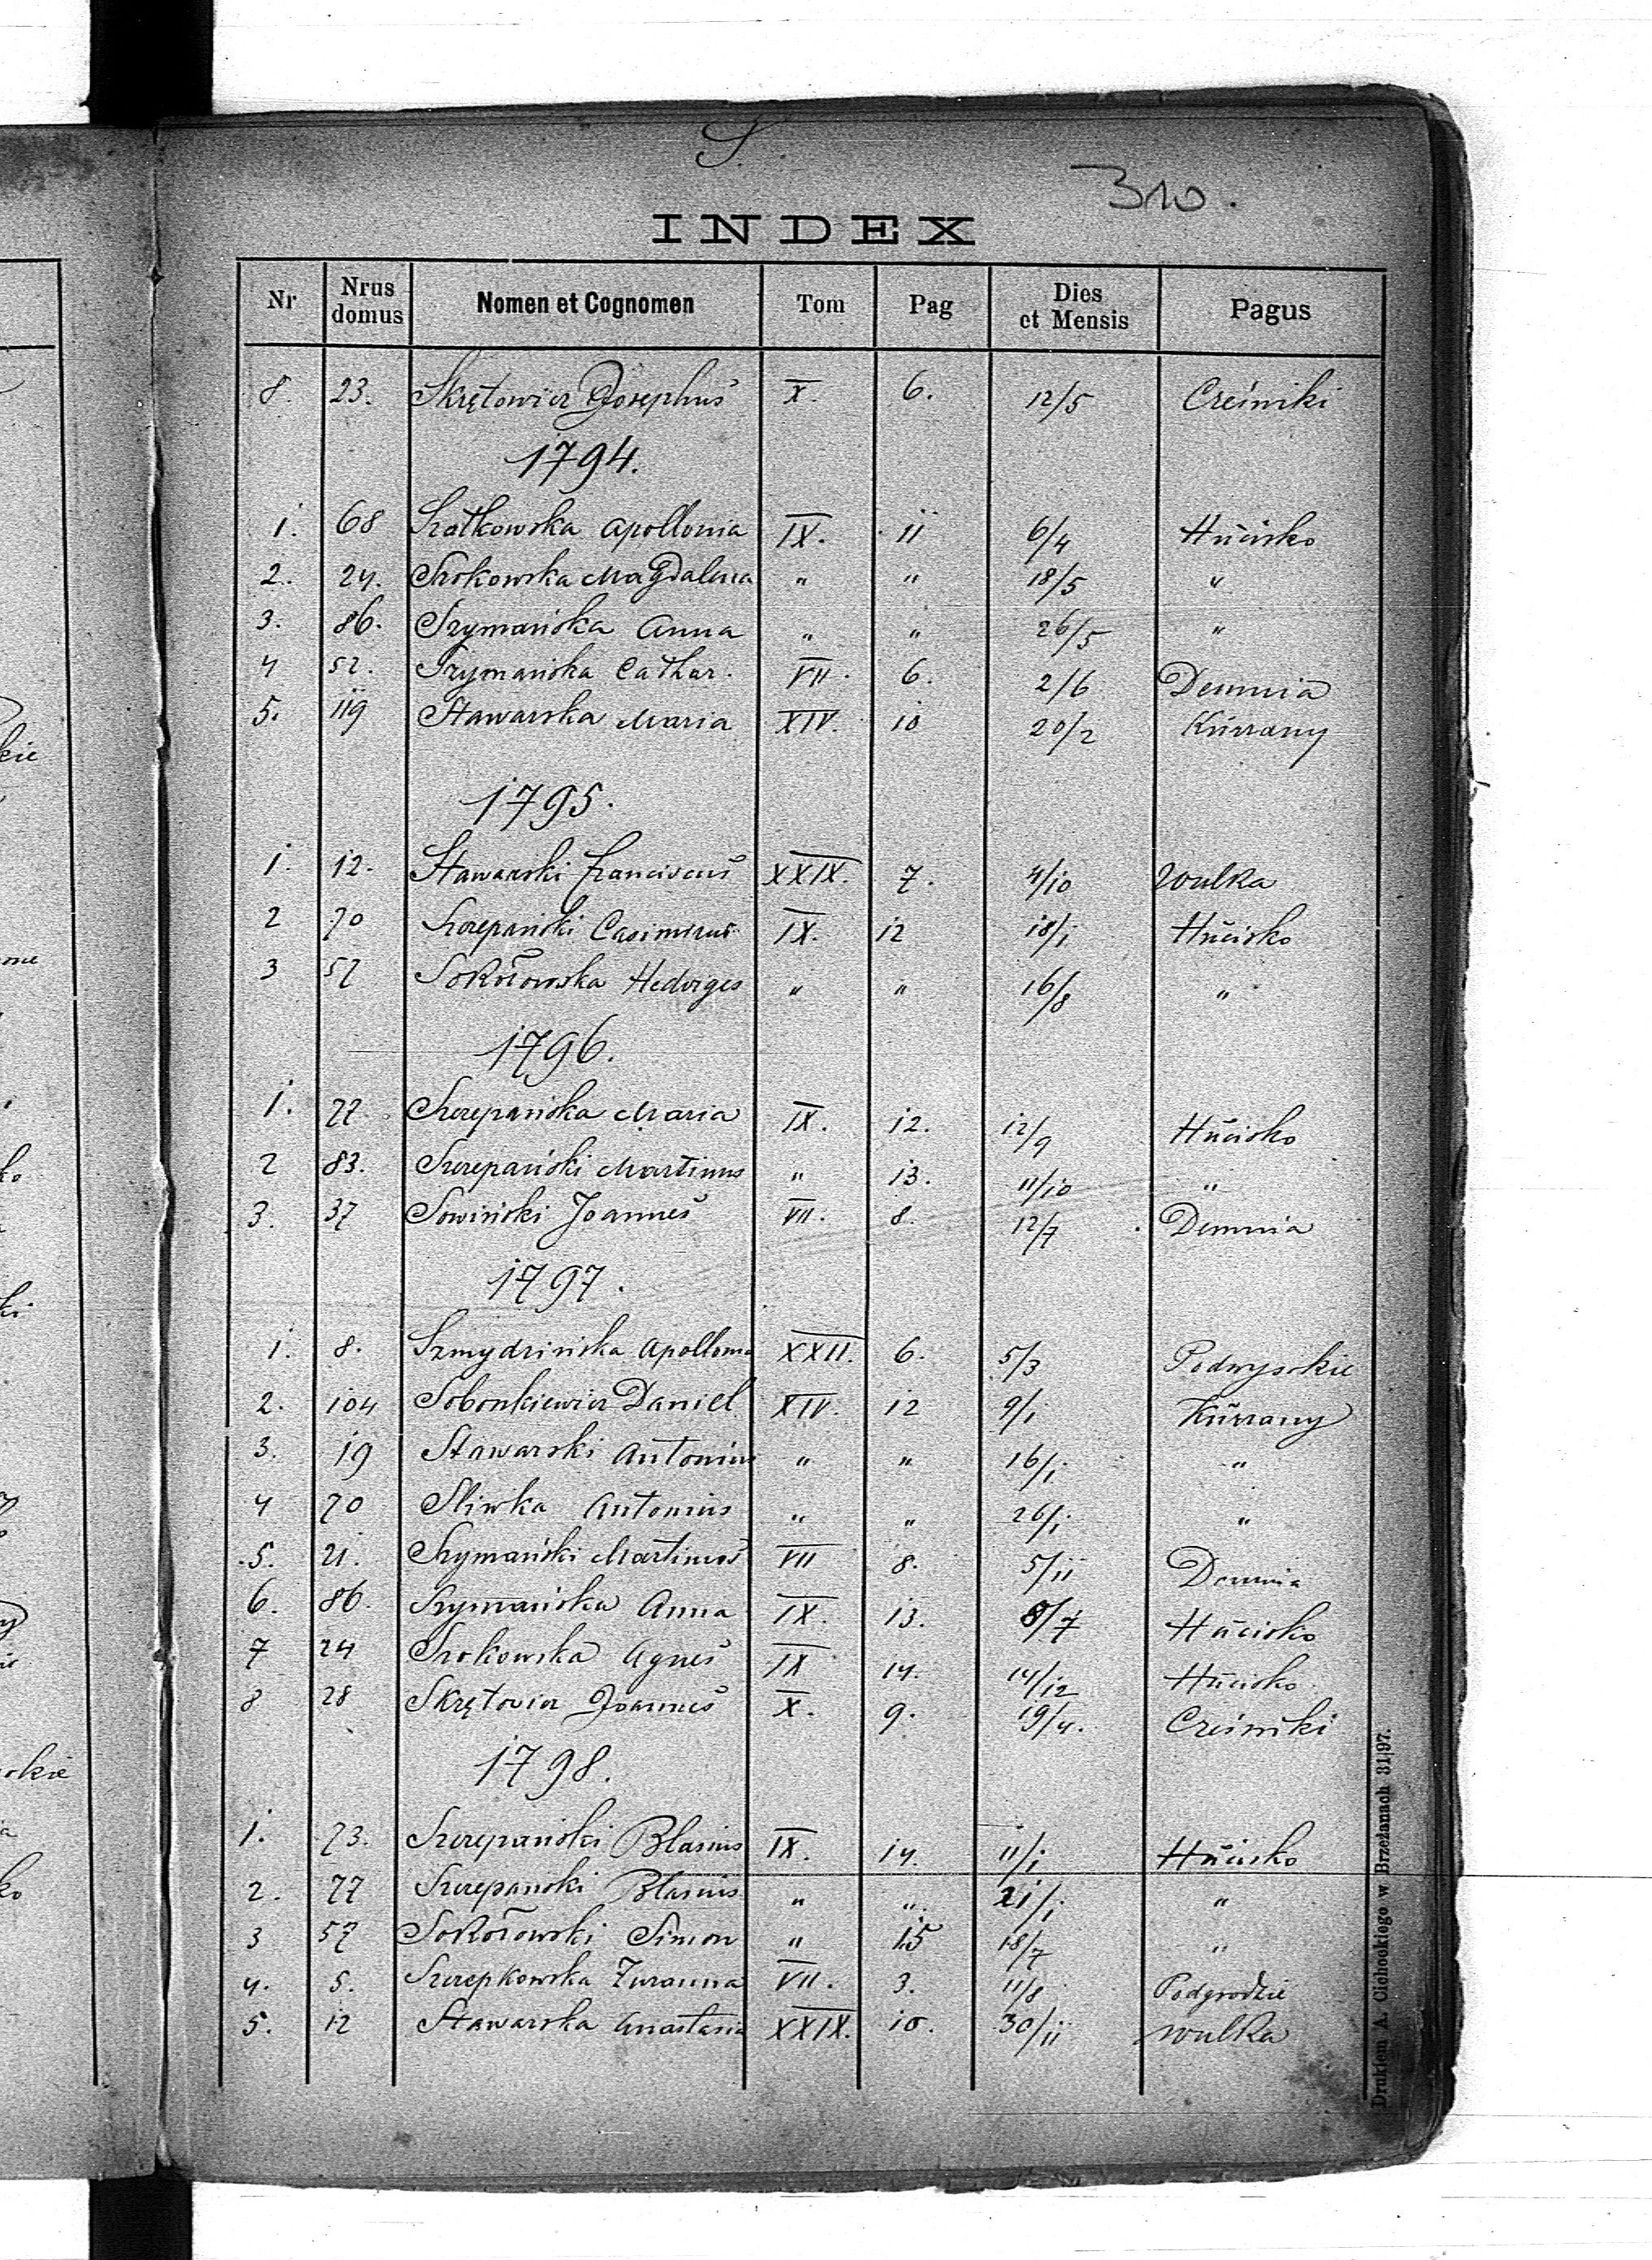 S.
310.
INDEX
Nr | Nrus domus | Nomen et Cognomen | Tom | Pag | Dies et Mensis | Pagus
8. 23. Skrętowicz Josephus X. 6. 12/5 Cześniki
1794.
1. 68 Szatkowska Apollonia IX. 11 6/4 Hucisko
2. 24. Srokowska Magdalena " " 18/5 "
3. 86. Szymańska Anna " " 26/5 "
4 52. Szymańska Cathar. VII. 6. 2/6 Demnia
5. 119 Stawarska Maria XIV. 10 20/2 Kurzany
1795.
1. 12. Stawarski Franciscus XXIX. 7. 4/10 Wulka
2 70 Szczepański Casimirus IX. 12 18/1 Hucisko
3 57 Sokołowska Hedviges " " 16/8 "
1796.
1. 77 Szczepańska Maria IX. 12. 12/9 Hucisko
2 83. Szczepański Martinus " 13. 11/10 "
3. 37 Sowiński Joannes VII. 8. 12/7 Demnia
1797.
1. 8. Szmydzińska Apollonia XXII. 6. 5/3 Podwysokie
2. 104 Sobonkiewicz Daniel XIV. 12 9/1 Kurzany
3. 19 Stawarski Antonius " " 16/1 "
4 70 Sliwka Antonius " " 26/1 "
5. 21. Szymański Martinus VII 8. 5/11 Demnia
6. 86. Szymańska Anna IX. 13. 8/7 Hucisko
7 24 Srokowska Agnes IX 14. 14/12 Hucisko
8 28 Skrętowicz Joannes X. 9. 19/4. Cześniki
1798.
1. 73. Szczepański Blasius IX. 14. 11/1 Hucisko
2. 77 Szczepański Blasius " " 21/1 "
3 57 Sokołowski Simon " 15 18/7 "
4. 5. Szczepkowska Zuzanna VII. 3. 11/8 Podgrodzie
5. 12 Stawarska Anastasia XXIX. 10. 30/11 Wulka
Drukiem A. Cichockiego w Brzeżanach 31|97.